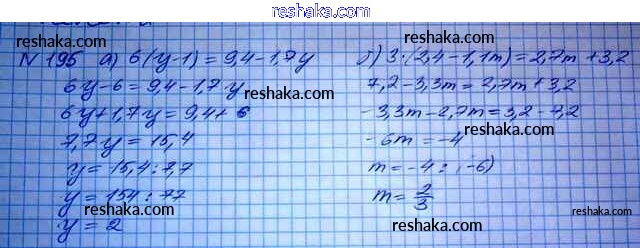 reshaka.com
reshaka.com
reshaka.com
N 195 а) 6(y-1) = 9,4-1,7y
6y-6 = 9,4-1,7·y
6y+1,7y = 9,4+6
7,7y = 15,4
y = 15,4:7,7
y = 154:77
y = 2
б) 3·(2,4-1,1m) = 2,7m+3,2
7,2-3,3m = 2,7m+3,2
-3,3m-2,7m = 3,2-7,2
-6m = -4
m = -4:(-6)
m = 2/3
reshaka.com
reshaka.com
reshaka.com
reshaka.com
reshaka.com
reshaka.com
reshaka.com